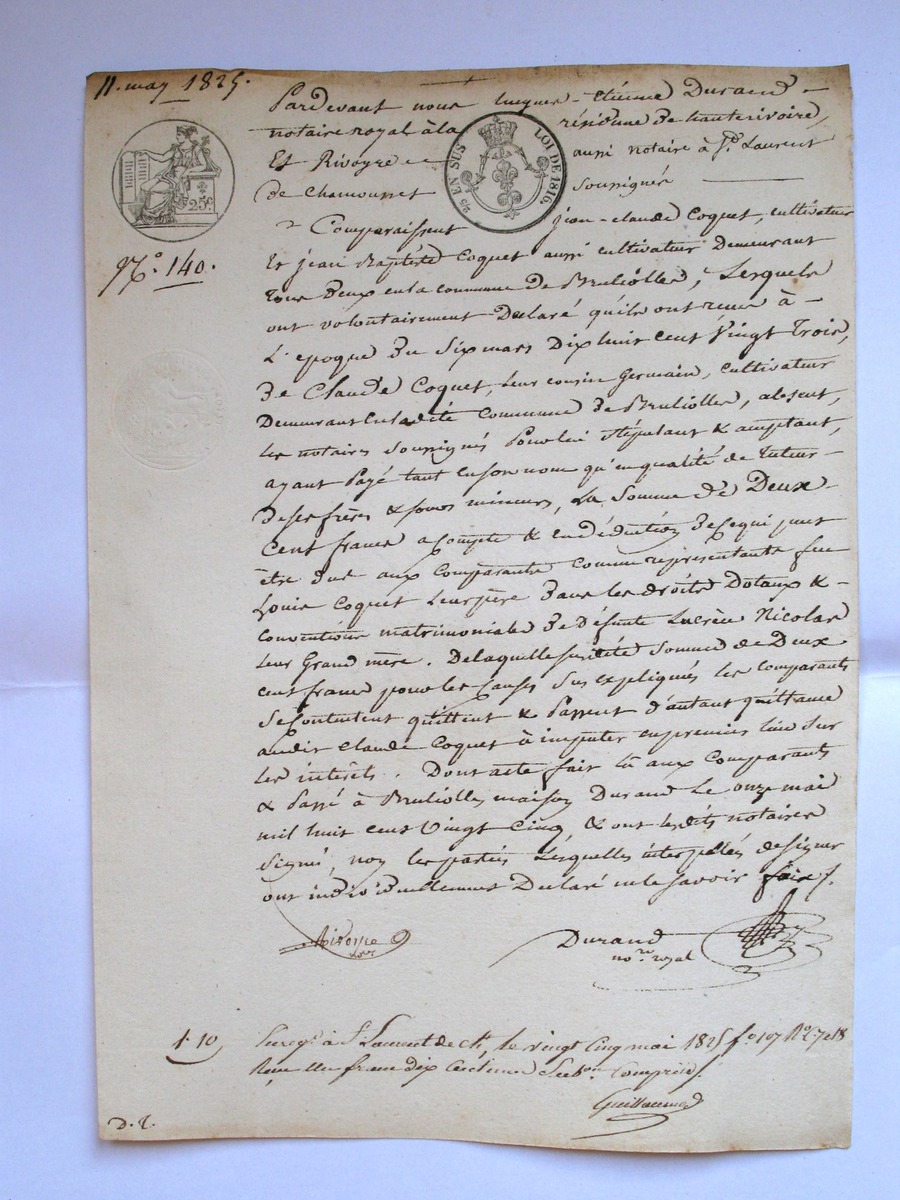 11. may 1825.
Pardevant nous hugues-étienne Durand
notaire royal à la résidence de hauterivoire,
Et Rivoyre aussi notaire à St. Laurent
de Chamousset soussignés
25c.
2/5 EN SUS LOI DE 1816.
Comparaissent jean-claude Coquet, cultivateur
No. 140.
Et jean Baptiste Coquet aussi cultivateur Demeurant
tous deux en la commune de Brulliolles, Lesquels
ont volontairement Déclaré qu'ils ont reçu à
L'époque du Six mars Dix huit cent Vingt Trois,
De Claude Coquet, leur cousin Germain, cultivateur
Demeurant en ladite Commune de Brulliolles, absent,
les notaires soussignés pour lui stipulant & acceptant,
ayant payé tant en son nom qu'en qualité de tuteur
de ses frères & sœurs mineurs, La Somme de Deux
Cent francs acompte & en déduction de ce qui peut
être due aux Comparants comme représentants feu
Louis Coquet leur père dans les droits Dotaux &
conventions matrimoniales de Défunte Lucrèce Nicolas
leur Grand mère. De laquelle susdite Somme de Deux
cent francs pour les causes sus expliquées les comparants
se contentent quittent & passent d'autant quittance
audit Claude Coquet à imputer en premier lieu sur
les intérêts. Dont acte fait lû aux Comparants
& Passé à Brulliolles maison Durand Le onze mai
mil huit cent Vingt Cinq, & ont lesdits notaires
signé, non les parties Lesquelles interpellées de signer
ont individuellement Déclaré ne le savoir faire /.
Rivoyre
Durand
nore royal
1-10
Enregé à St Laurent de Ch, le vingt Cinq mai 1825 fo 107 Ro C. 7 et 8
Reçu un franc dix Centimes Subon Compris.
Guillaume
D. T.